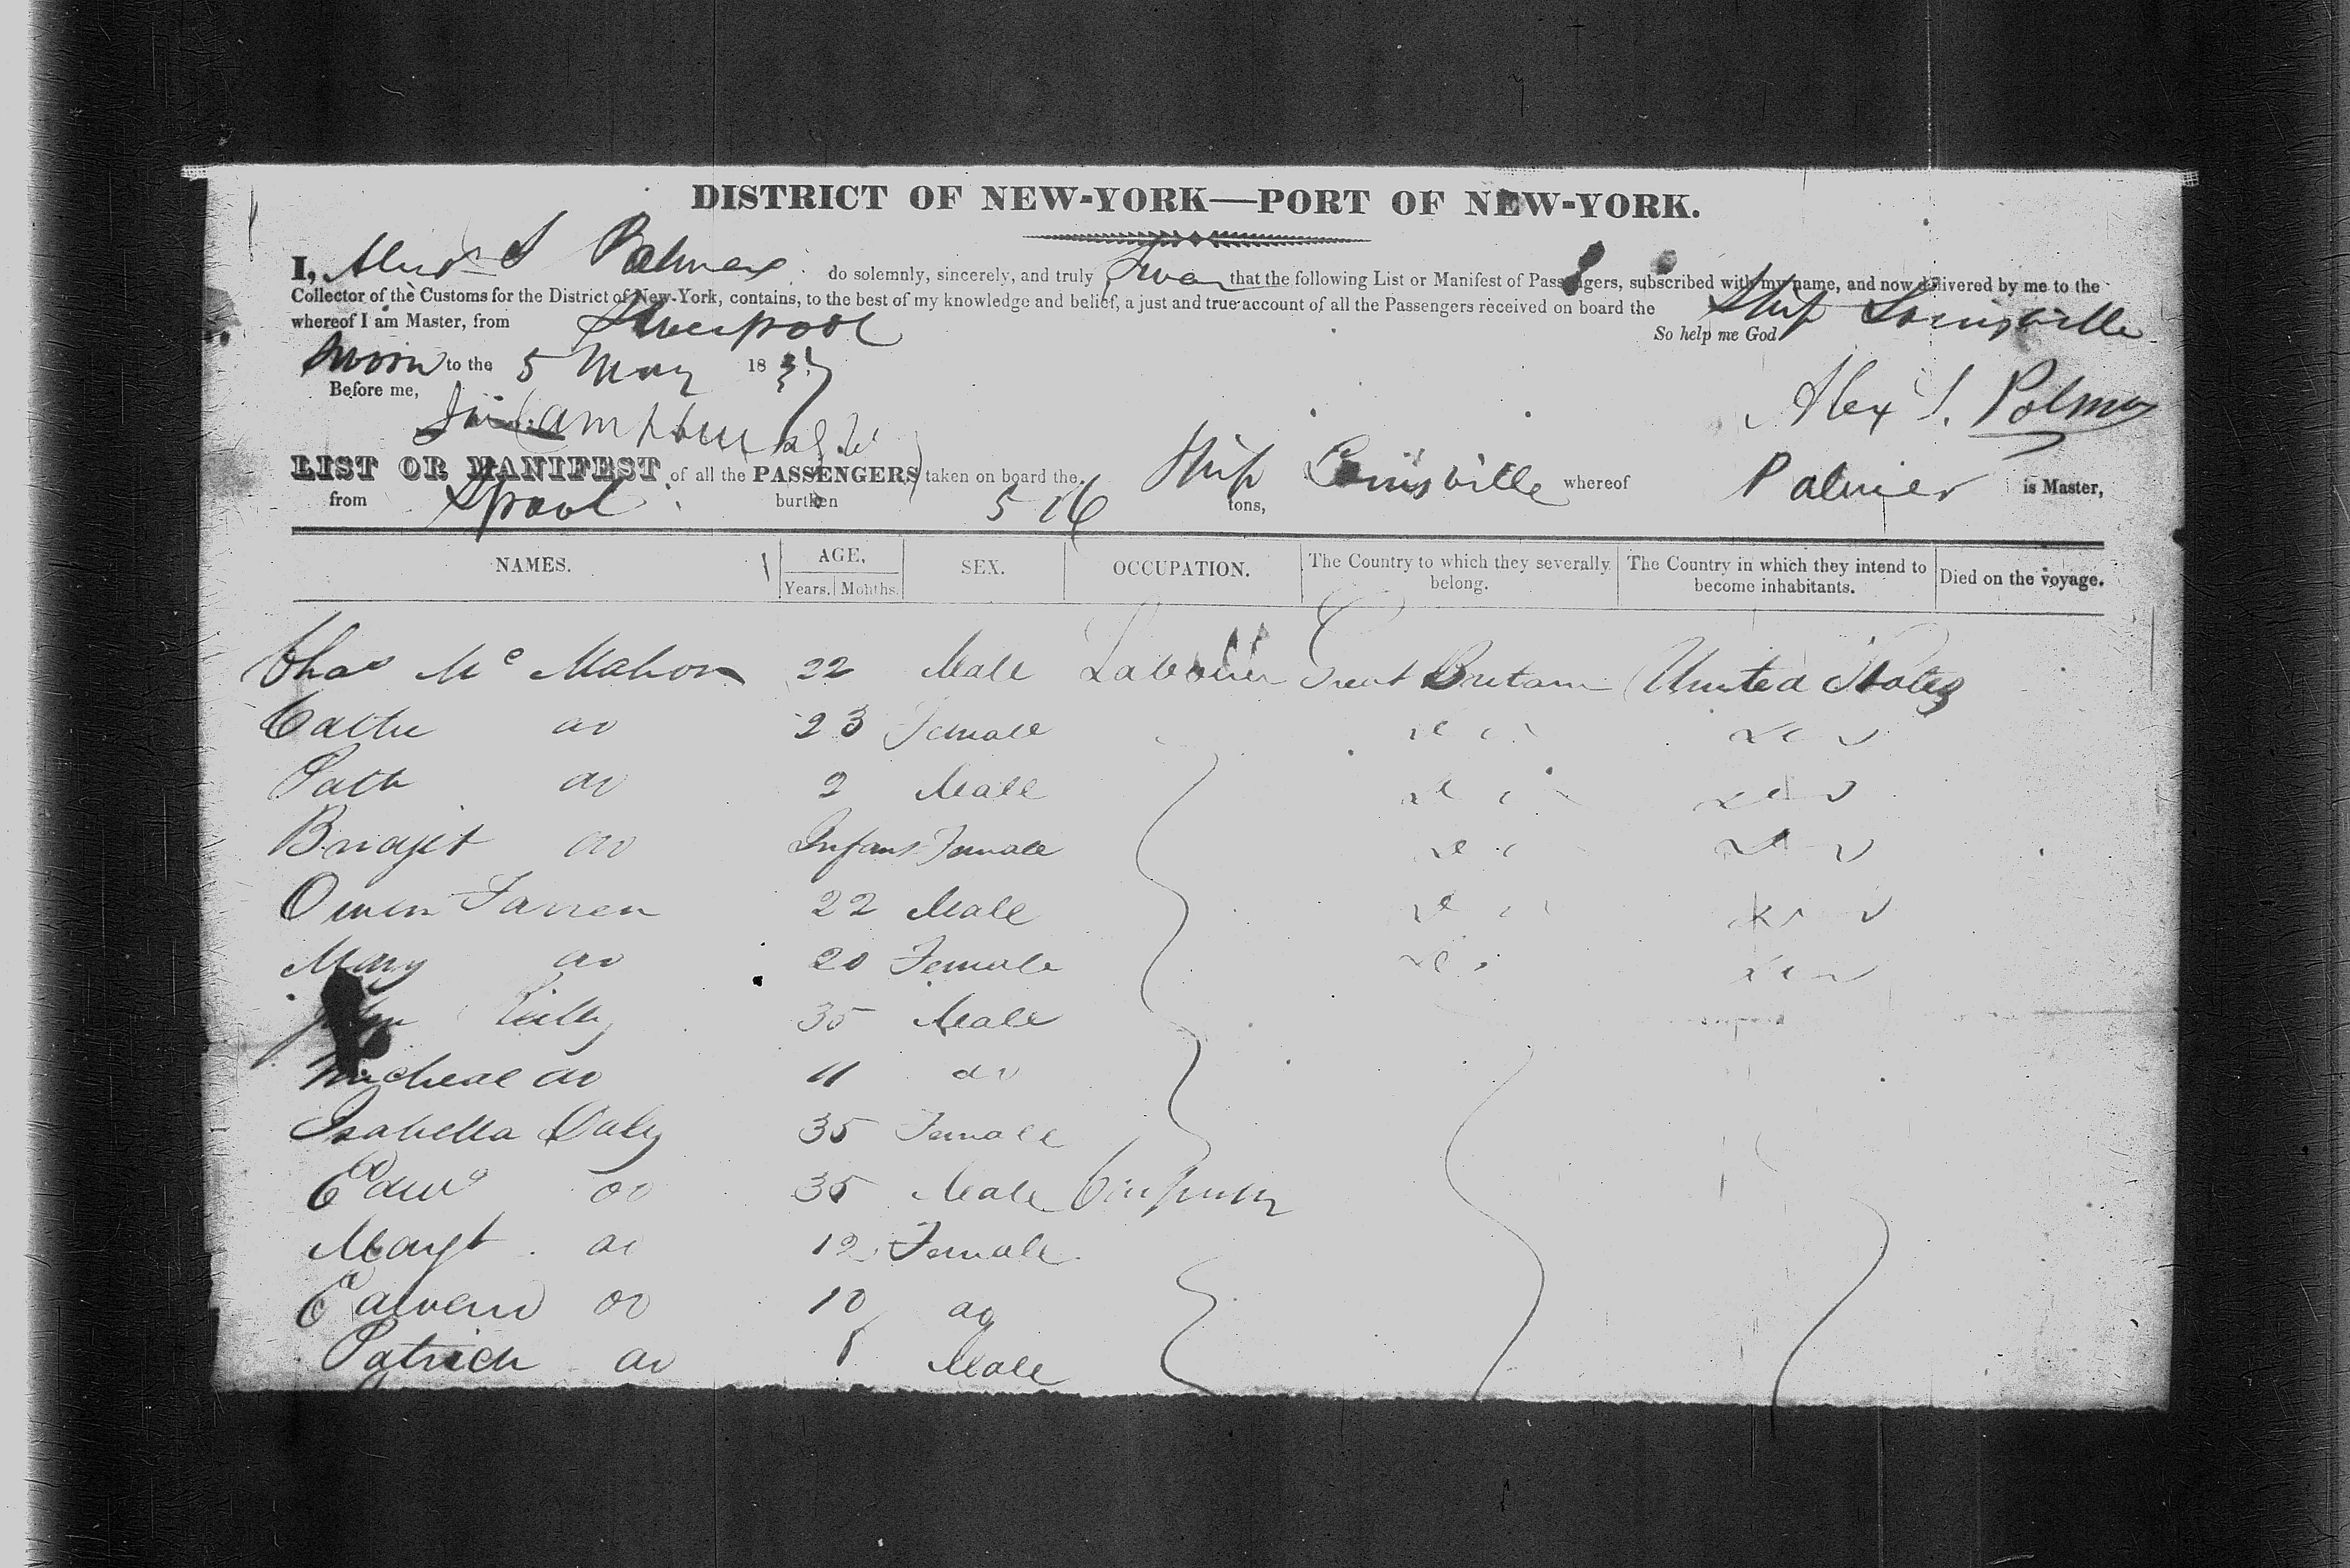 DISTRICT OF NEW-YORK—PORT OF NEW-YORK.
I, Alexr S Palmer do solemnly, sincerely, and truly Swear that the following List or Manifest of Passengers, subscribed with my name, and now delivered by me to the
Collector of the Customs for the District of New-York, contains, to the best of my knowledge and belief, a just and true account of all the Passengers received on board the Ship Louisville
whereof I am Master, from Liverpool So help me God
Sworn to the 5 May 1837
Before me, Alex S. Palmer
LIST OR MANIFEST of all the PASSENGERS taken on board the Ship Louisville whereof Palmer is Master,
from Lpool burthen 516 tons,
NAMES. AGE, SEX. OCCUPATION. The Country to which they severally belong. The Country in which they intend to become inhabitants. Died on the voyage.
Years. Months.
Thos Mc Mahon 22 Male Labourer Great Britain United States
Cathe do 23 Female
Patk do 2 Male
Bridget do Infant Female
Owen Farren 22 Male
Mary do 20 Female
John Reilly 35 Male
Micheal do 11 do
Isabella Daly 35 Female
Edwd do 35 Male
Margt do 12 Female
Edward do 10 do
Patrick do 8 Male